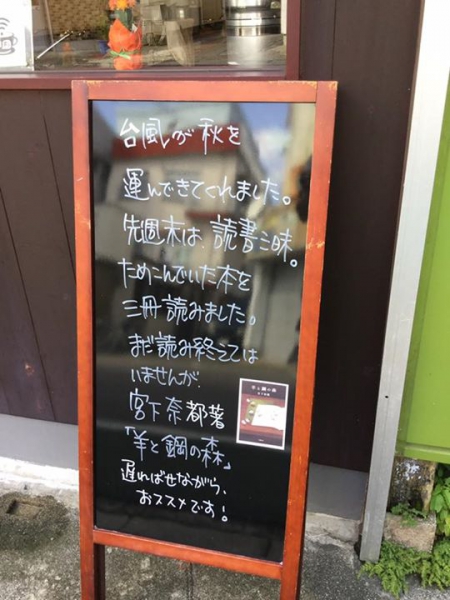 台風が秋を
運んできてくれました。
先週末は、読書三昧。
ためこんでいた本を
三冊読みました。
まだ読み終えては
いませんが、
宮下奈都著
「羊と鋼の森」
遅ればせながら、
おススメです!
羊と鋼の森